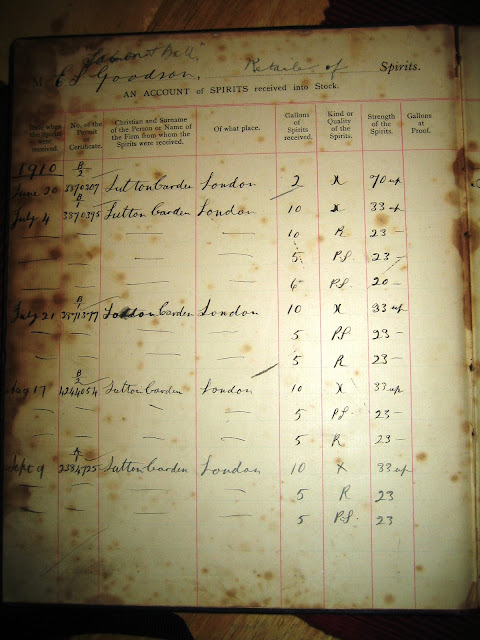 M E S Goodson, Retailer of Spirits.
AN ACCOUNT of SPIRITS received into Stock.
Date when the Spirits were received. No. of the Permit or Certificate. Christian and Surname of the Person or Name of the Firm from whom the Spirits were received. Of what place. Gallons of Spirits received. Kind or Quality of the Spirits. Strength of the Spirits. Gallons at Proof.
1910 B/2
June 20 3870207 Sutton Carden London 2 X 70 up
B/1
July 4 3870395 Sutton Carden London 10 X 33 up
— — — — 10 R 23 —
— — — — 5 P.S. 23 —
— — — — 6 P.S. 20 —
B/1
July 21 3871377 Carden London 10 X 33 up
— — — — 5 P.S. 23 —
— — — — 5 R 23 —
B/2
Aug 17 4244054 Sutton Carden London 10 X 33 up
— — — — 5 P.S. 23 —
— — — — 5 R 23 —
Sept 9 2384725 Sutton Carden London 10 X 33 up
— — — — 5 R 23
— — — — 5 P.S. 23